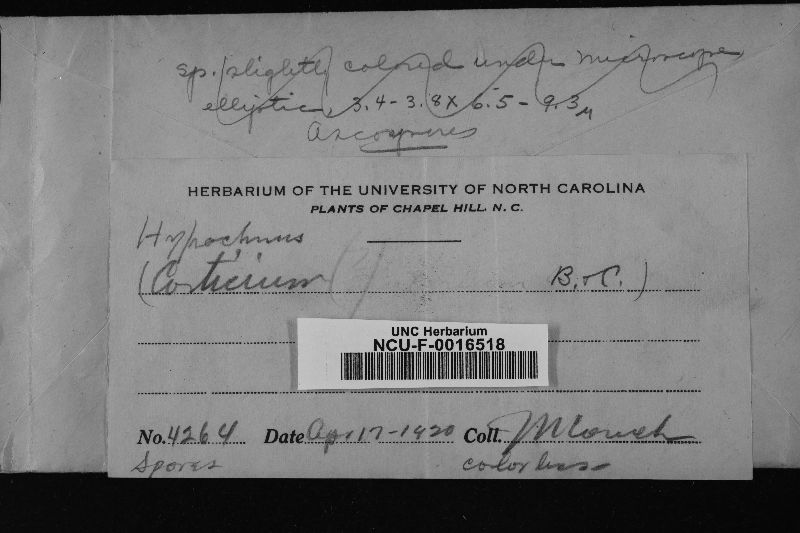 sp. slightly colored under microscope
elliptic, 3.4-3.8 x 6.5-9.3µ
Ascospores
HERBARIUM OF THE UNIVERSITY OF NORTH CAROLINA
PLANTS OF CHAPEL HILL, N. C.
Hypochnus
(Corticium B. & C.)
UNC Herbarium
NCU-F-0016518
No. 4264 Date Apr 17-1920 Coll. J N Couch
Spores colorless